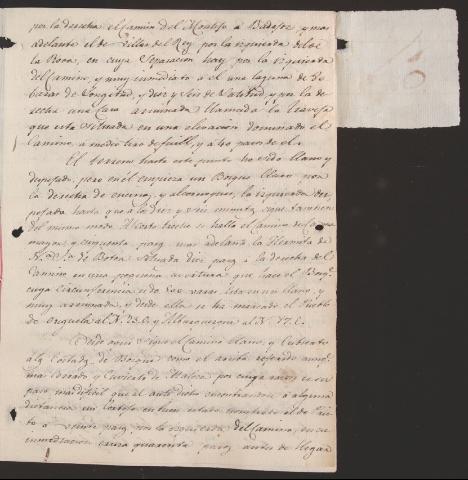 por la derecha el Camino del Montijo à Badajoz y mas
adelante el de Villar del Rey por la izquierda del de
la Roca, en cuya Separacion hay por la izquierda
del Camino, y muy inmediato à él una laguna de 80
baras de Longitud, y diez y Seis de Latitud, y por la de
recha una Casa arruinada llamada la
que está situada en una elevacion dominando el
Camino, à medio tiro de fusil, y à 40 pasos de el.
El terreno hasta este punto ha sido llano y
despejado, pero en él empieza un Bosque Claro por
la derecha de encina, y alcornoques, la izquierda des
pejada hasta que à los diez y seis minutos sigue tambien
del mismo modo. Al corto trecho se halla el Camino de
y cinquenta pasos mas adelante la Hermita de
N.ª S.ª de Botoa. Situada diez pasos à la derecha del
Camino en una pequeña avertura que hace el Bosq.e
cuya circunferencia es de 200 varas, está en un llano, y
muy arruinada, y desde ella se ha marcado el Pueblo
de al N. y Alburquerque al N.
Desde aqui Sigue el Camino llano, y Cubierto
à los Costados, de Bosque como el arriba referido aunq.e
mas Cerrado y Cubierto de Maleza por cuya razon es un
paso mas dificil que el antedicho encontrandose à alguna
distancia un Cortijo en buen estado nombrado el de
à veinte pasos por la izquierda del Camino, en cu
inmediacion quarenta pasos antes de llegar